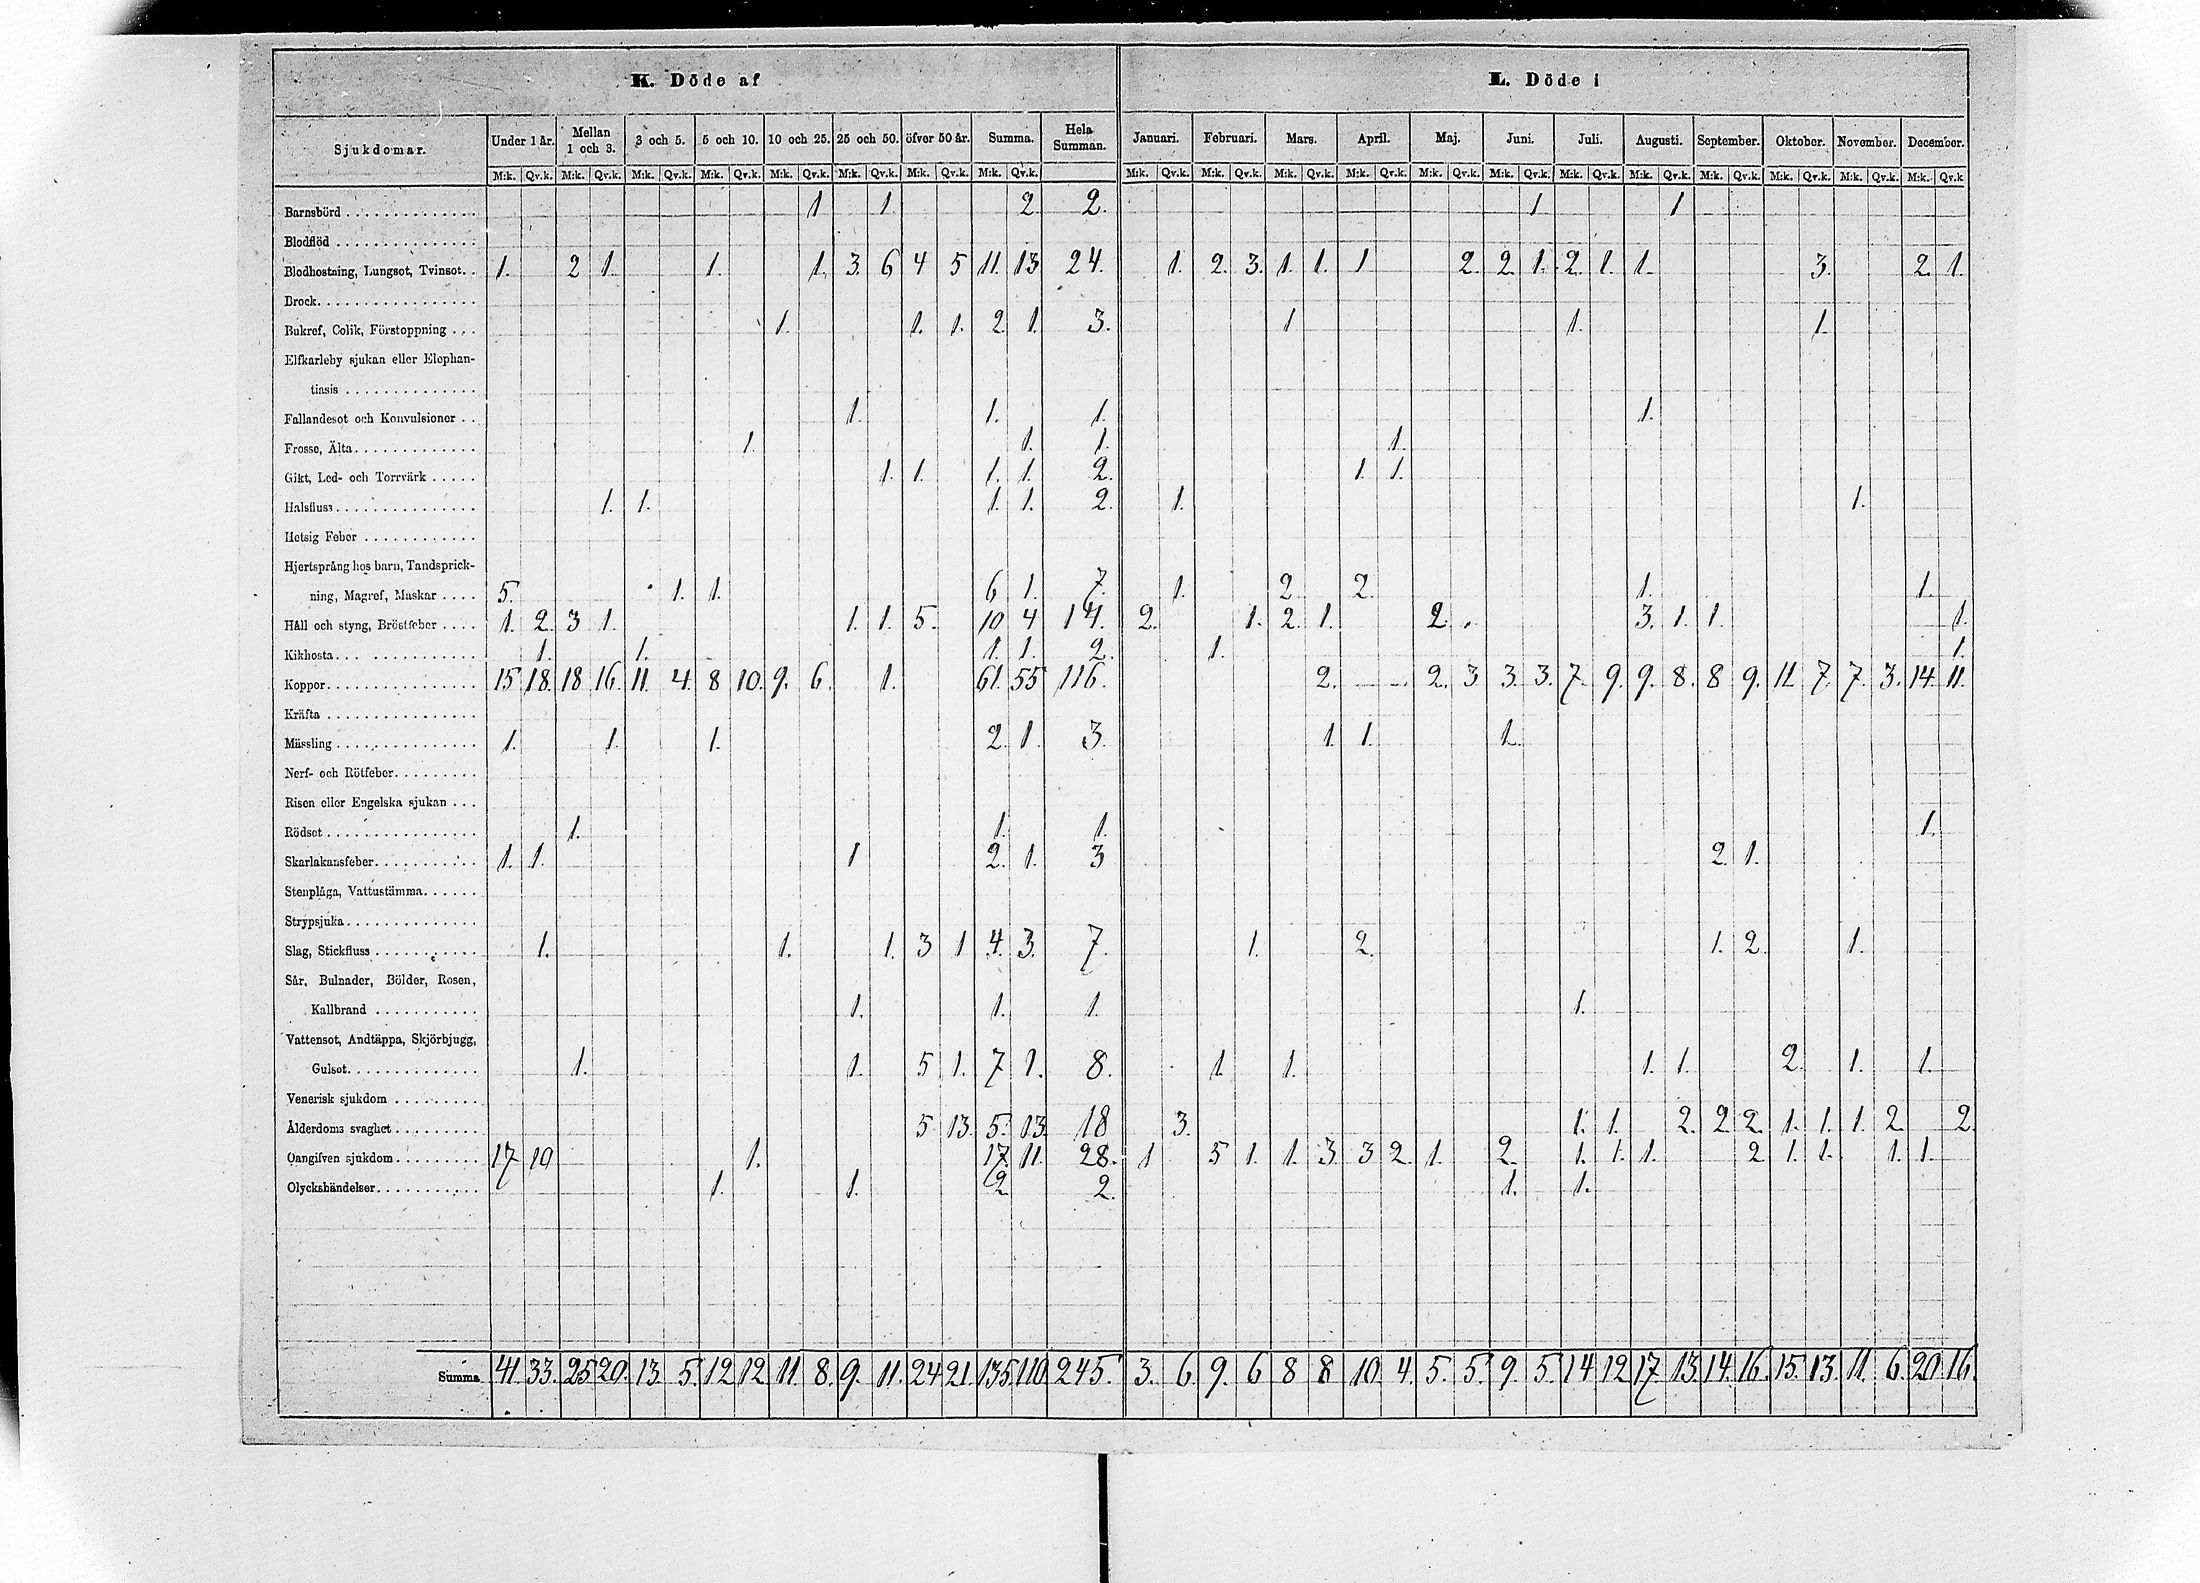 K. Döde af L. Döde i
Sjukdomar. Under 1 år. Mellan 1 och 3. 3 och 5. 5 och 10. 10 och 25. 25 och 50. öfver 50 år. Summa. Hela Summan. Januari. Februari. Mars. April. Maj. Juni. Juli. Augusti. September. Oktober. November. December.
M:k. Qv.k. M:k. Qv.k. M:k. Qv.k. M:k. Qv.k. M:k. Qv.k. M:k. Qv.k. M:k. Qv.k. M:k. Qv.k. M:k. Qv.k. M:k. Qv.k. M:k. Qv.k. M:k. Qv.k. M:k. Qv.k. M:k. Qv.k. M:k. Qv.k. M:k. Qv.k. M:k. Qv.k. M:k. Qv.k. M:k. Qv.k. M:k. Qv.k
Barnsbörd 1 1. 2 2. 1. 1
Blodflöd
Blodhostning, Lungsot, Tvinsot. 1. 2 1. 1. 1. 3. 6 4 5 11. 13 24. 1. 2. 3. 1. 1. 1 2. 2 1. 2. 1. 1. 3. 2. 1.
Brock
Bukref, Colik, Förstoppning 1. 1. 1. 2. 1. 3. 1 1. 1.
Elfkarleby sjukan eller Elephan-
tiasis
Fallandesot och Konvulsioner 1. 1. 1. 1.
Frosse, Älta 1. 1. 1. 1.
Gikt, Led- och Torrvärk 1. 1. 1. 1. 2. 1. 1.
Halsfluss 1. 1. 1. 1. 2. 1. 1.
Hetsig Feber
Hjertsprång hos barn, Tandsprick-
ning, Magref, Maskar 5. 1. 1. 6 1. 7. 1. 2. 2. 1. 1.
Håll och styng, Bröstfeber 1. 2. 3 1. 1. 1. 5. 10 4 14. 2. 1. 2. 1. 2. 3. 1. 1. 1.
Kikhosta 1. 1. 1. 1. 2. 1. 1.
Koppor 15 18. 18 16. 11. 4. 8 10. 9. 6. 1. 61. 55 116. 2. 2. 3 3. 3. 7. 9. 9. 8. 8 9. 11 7. 7. 3. 14. 11.
Kräfta
Mässling 1. 1. 1. 2. 1. 3. 1. 1. 1.
Nerf- och Rötfeber
Risen eller Engelska sjukan
Rödsot 1. 1. 1. 1.
Skarlakansfeber 1. 1. 1 2. 1. 3 2. 1.
Stenplåga, Vattustämma
Strypsjuka
Slag, Stickfluss 1. 1. 1. 3 1 4. 3. 7. 1. 2. 1. 2. 1.
Sår, Bulnader, Bölder, Rosen,
Kallbrand 1. 1. 1. 1.
Vattensot, Andtäppa, Skjörbjugg,
Gulsot 1. 1. 5 1. 7 1. 8. 1. 1. 1. 1. 2. 1. 1.
Venerisk sjukdom
Ålderdoms svaghet 5 13. 5. 13. 18 3. 1. 1. 2. 2. 2. 1. 1. 1. 2. 2.
Oangifven sjukdom 17 10 1. 17. 11. 28. 1 5 1. 1. 3. 3 2. 1. 2. 1. 1. 1. 2 1. 1. 1. 1.
Olyckshändelser 1. 1. 2 2. 1. 1.
Summa 41. 33. 25 20. 13. 5. 12 12. 11. 8. 9. 11. 24 21. 135 110. 245. 3. 6. 9. 6 8 8 10. 4. 5. 5. 9. 5. 14 12 17. 13. 14. 16. 15. 13. 11. 6. 20. 16.